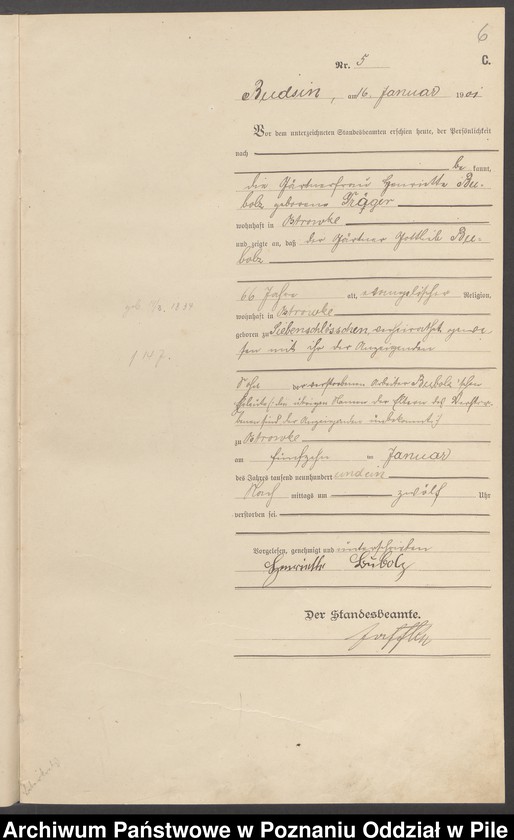 6
C.
Nr. 5
Budsin, am 16. Januar 1901
Vor dem unterzeichneten Standesbeamten erschien heute, der Persönlichkeit
nach
be kannt,
die Gärtnerfrau Henriette Bu-
bolz geborene Träger
wohnhaft in Ostrowke
und zeigte an, daß der Gärtner Gottlieb Bu-
bolz
66 Jahre alt, evangelischer Religion,
wohnhaft in Ostrowke
geboren zu Siebenschlösschen, verheirathet gewe-
sen mit ihr der Anzeigenden
Sohn der verstorbenen Arbeiter Bubolz'schen
Eheleute, die übrigen Namen der Eltern des Verstor-
benen sind der Anzeigenden unbekannt.
zu Ostrowke
am fünfzehn ten Januar
des Jahres tausend neunhundert und ein
Nach mittags um zwölf Uhr
verstorben sei.
Vorgelesen, genehmigt und unterschrieben
Henriette Bubolz
Der Standesbeamte.
Archiwum Państwowe w Poznaniu Oddział w Pile